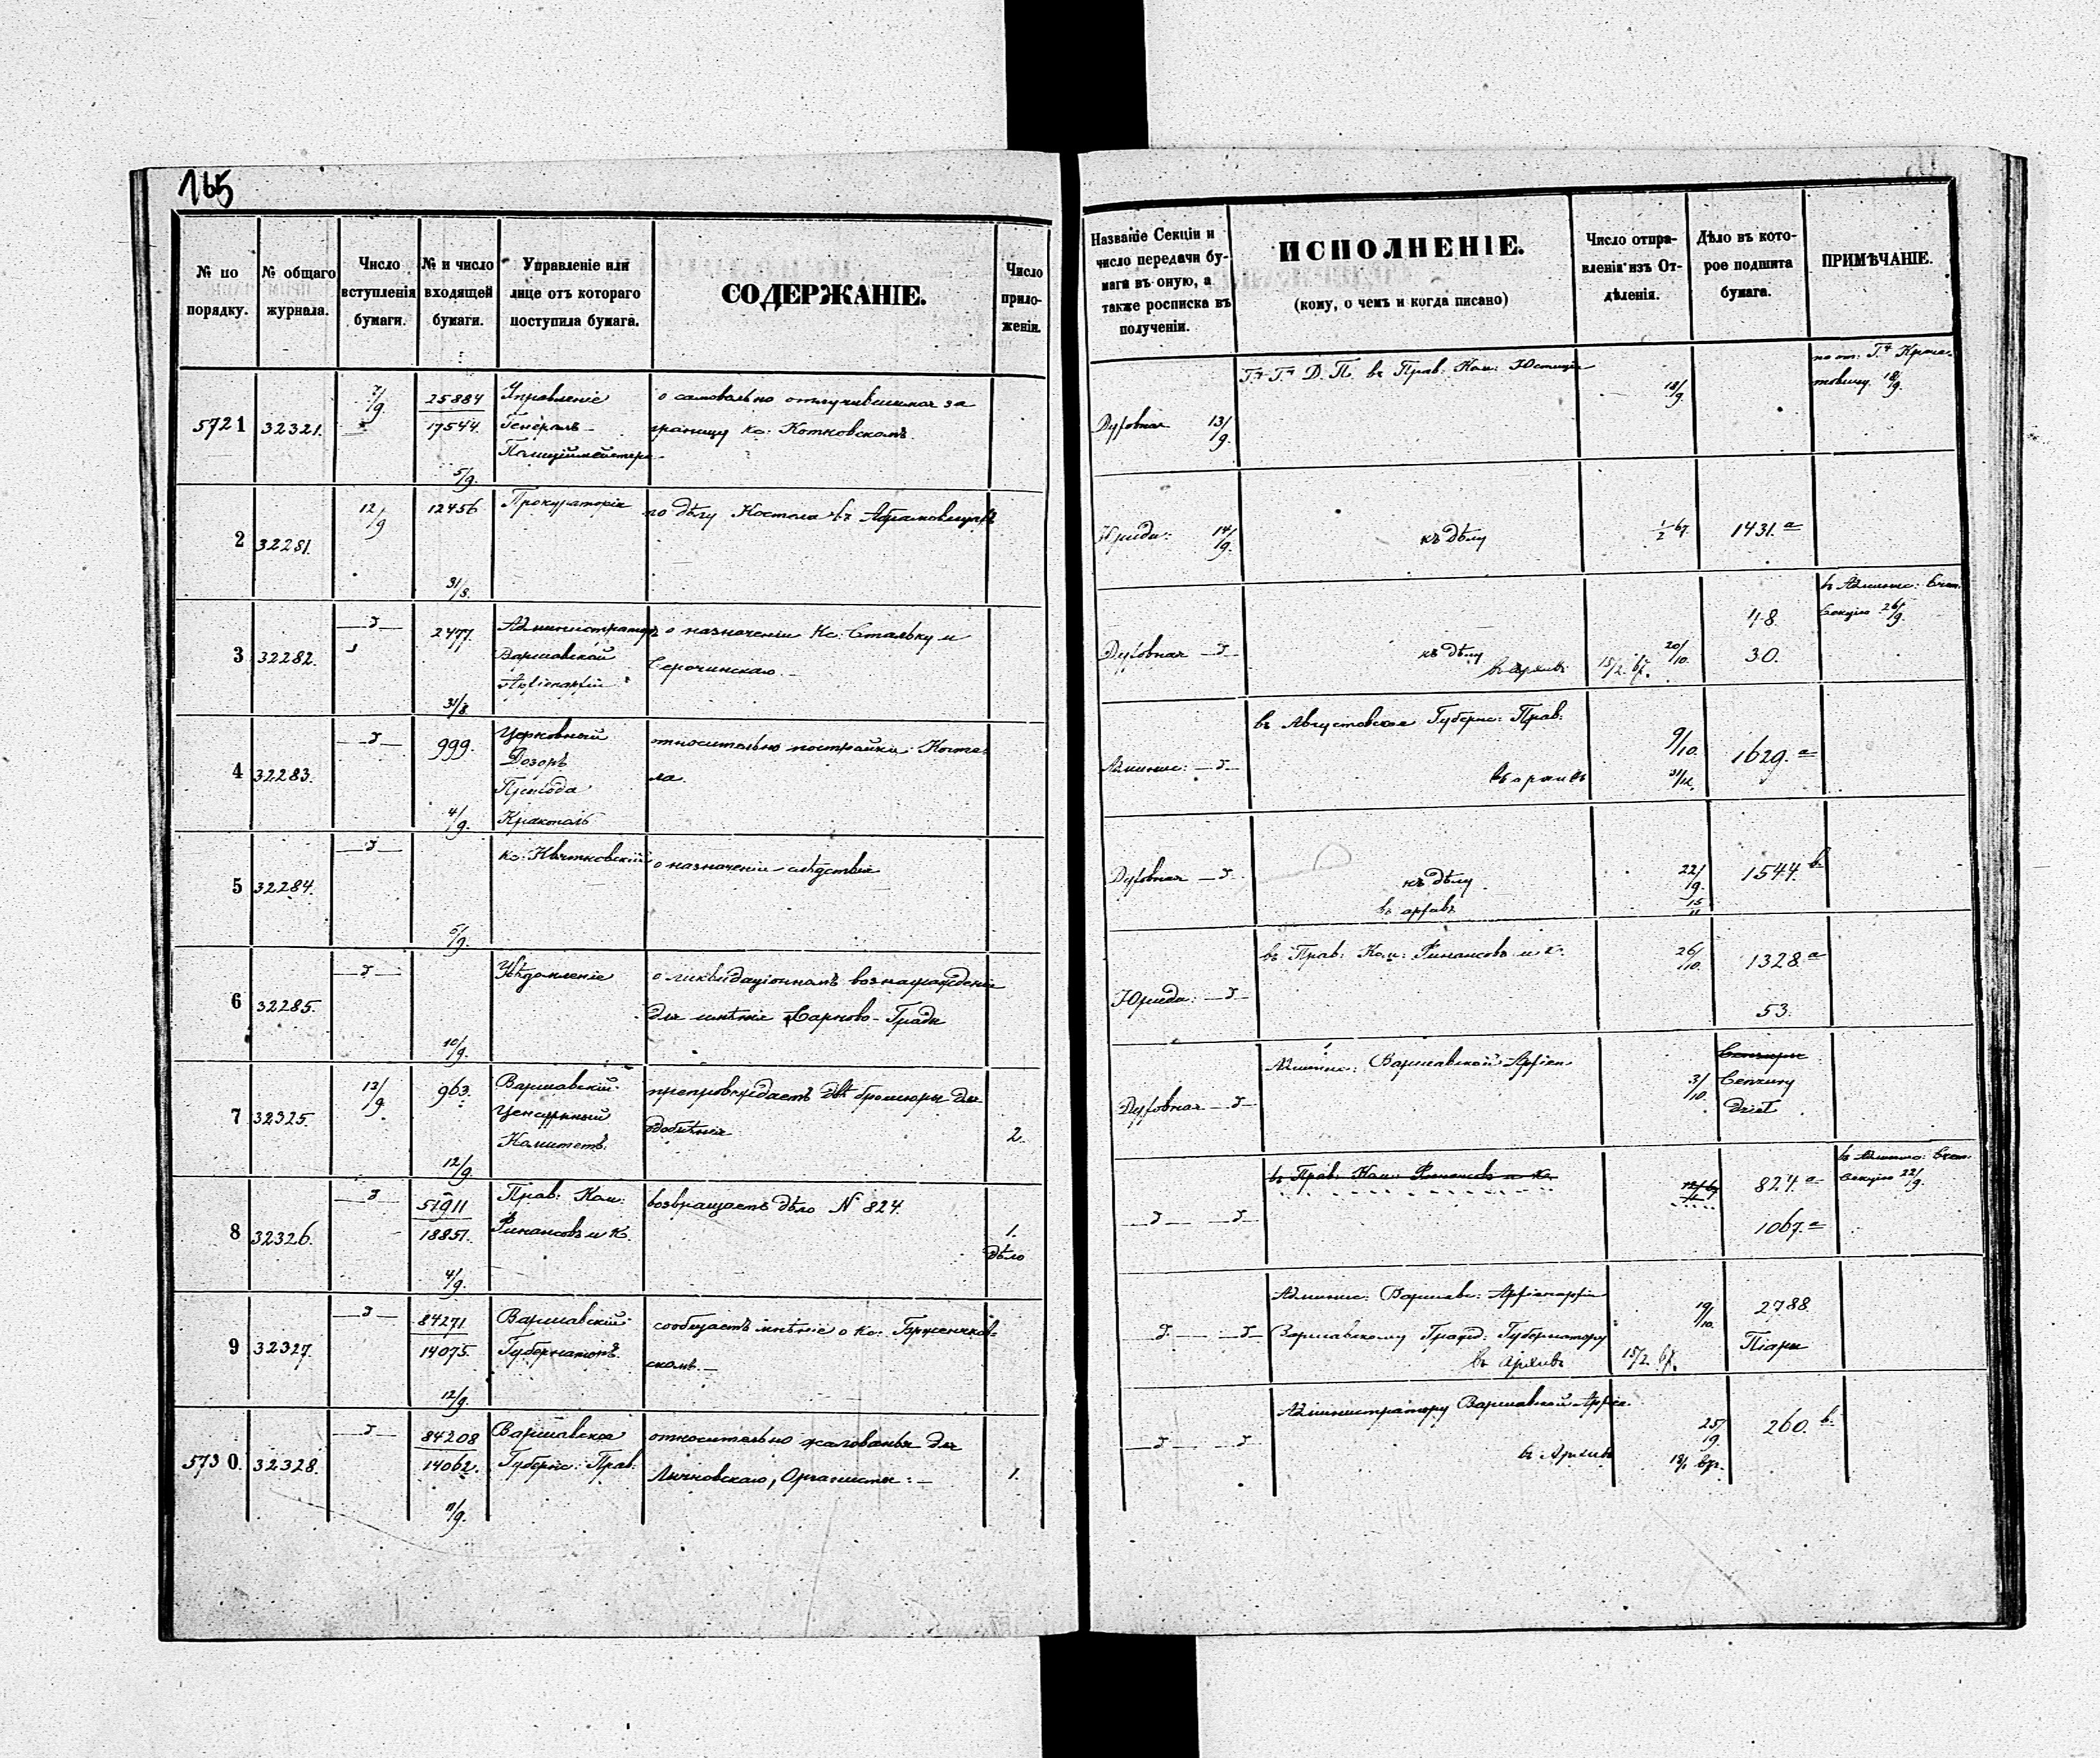 165
№ по порядку.
№ общаго журнала.
Число вступленія бумаги.
№ и число входящей бумаги.
Управленіе или лице отъ котораго поступила бумага.
СОДЕРЖАНІЕ.
Число прило-женій.
Названіе Секціи и число передачи бу-маги въ оную, а также росписка въ полученіи.
ИСПОЛНЕНІЕ.
(кому, о чемъ и когда писано)
Число отпра-вленія изъ От-дѣленія.
Дѣло въ кото-рое подшита бумага.
ПРИМѢЧАНІЕ.
5721 32321. 7/9 25884 17544. 5/9. Управленіе Генералъ-Полицiймейстера
о самовольно отлучившимся за границу Кс. Котковскомъ.
Духовная 13/9. Д. П. въ Прав. Ком: Юстиціи 18/9. 18/9.
2 32281. 12/9 12456 31/8. Прокураторія по дѣлу Костела въ
Юрид: 14/9. къ дѣлу 1431. а
3 32282. 2477. 31/8. Администраторъ Варшавской Архіепархіи
о назначеніи Кс. Стальку и
Духовная къ дѣлу 20/10. 48. въ Админис: Секцію 26/9.
въ архивъ 15/2. 67. 30.
4 32283. 999. 4/9. Церковный Дозоръ Прихода
относительно постройки Косте-ла.
Админис: въ Августовское Губерн: Прав: 9/10. 1629. а
въ архивъ
5 32284. 5/9. о назначеніи слѣдствія
Духовная къ дѣлу 22/9. 1544. b.
въ архивъ 15/11
6 32285. 10/9. Увѣдомленіе о ликвидаціонномъ вознагражденіи
для имѣнія
Юрид: въ Прав: Ком: Финансовъ и К. 26/10. 1328. а
53.
7 32325. 13/9 963. 12/9. Варшавскій Ценсурный Комитетъ.
препровождаетъ двѣ брошюры для 2.
Духовная Админис: Варшавской Архіеп 3/10. Cenzury dzieł
8 32326. 57911 18857. 4/9. Прав: Ком: Финансовъ и К.
возвращаетъ дѣло N 824. 1. дѣло
въ Прав: Ком: Финансовъ и К. 824. а въ Админис: Секцію 22/9.
1067. а
9 32327. 84271 14075. 12/9. Варшавскій Губернаторъ.
сообщаетъ мнѣніе о Кс.
Админис: Варшавс: Архіепархіи 19/10. 2788.
Варшавскому Гражд: Губернатору Піары
въ Архивъ 15/2. 67.
5730. 32328. 84208 14062. 11/9. Варшавское Губернс: Прав:
относительно жалованья для
Лычковскаго, Органисты. 1.
Администратору Варшавской Архіеп. 25/9. 260. b.
въ Архивъ